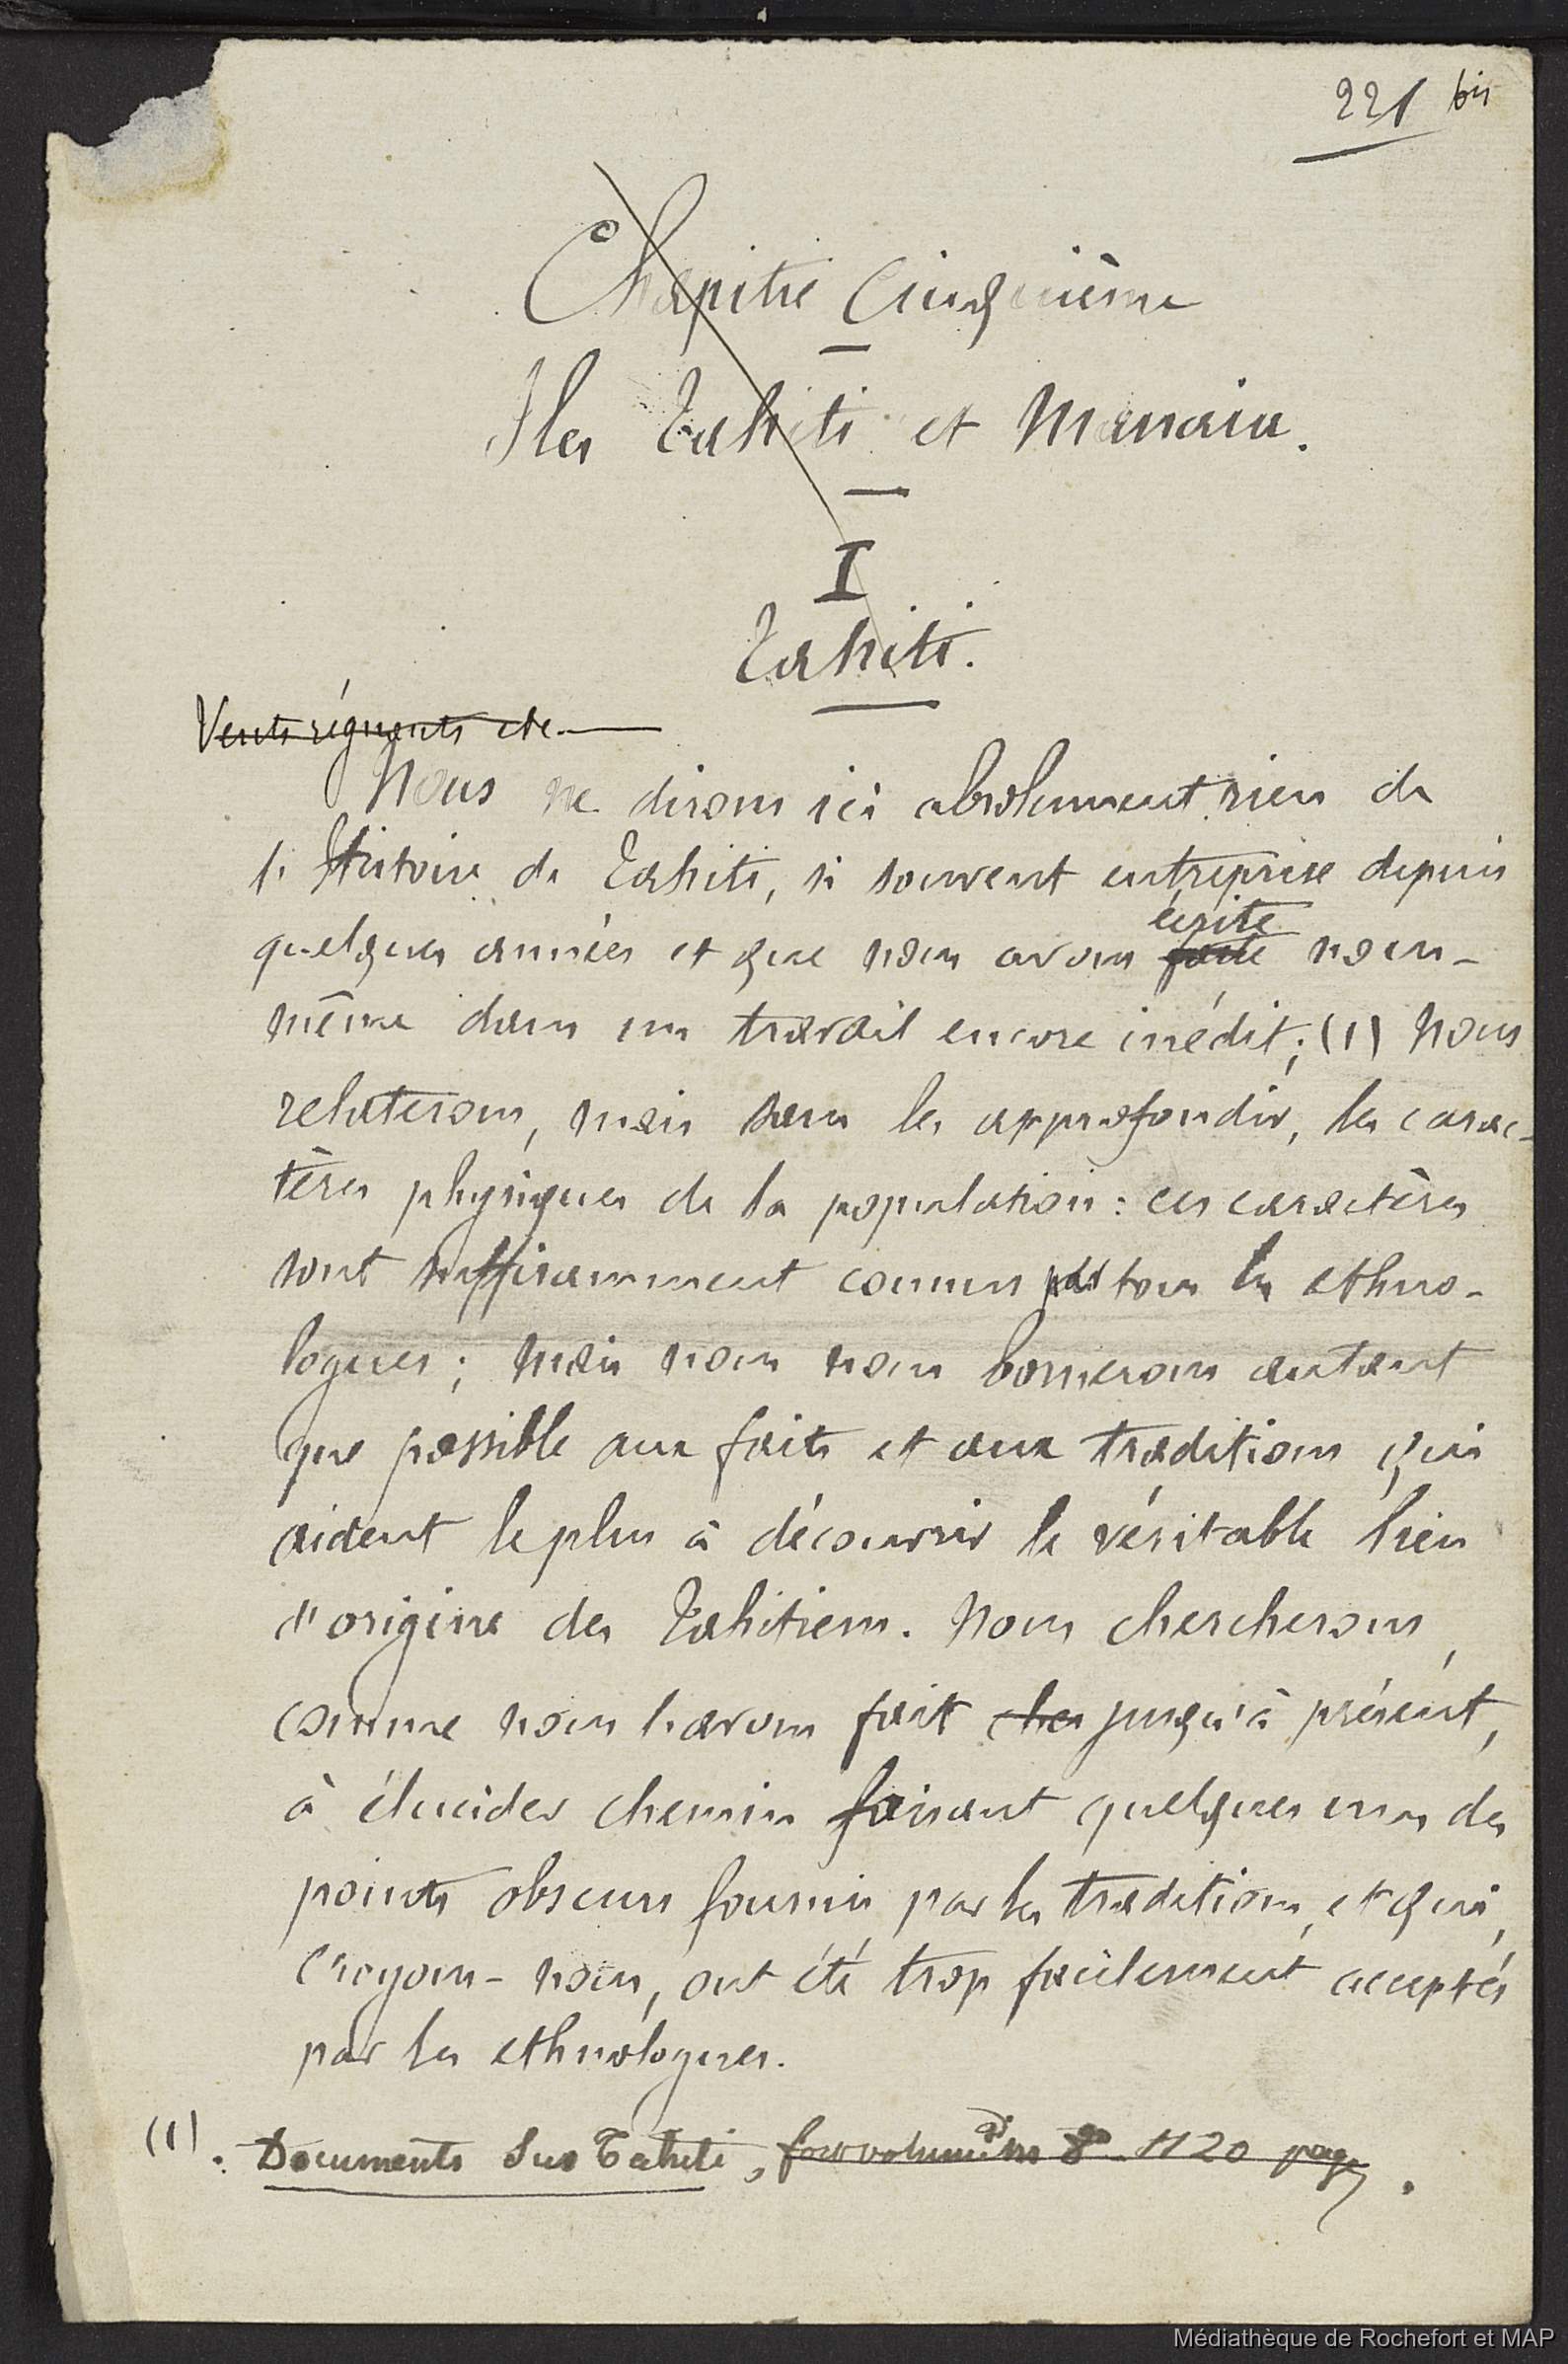 221 bis
Chapitre Cinquième
Iles Tahiti et Manaia.
I
Tahiti.
Vents régnants etc.
Nous ne dirons ici absolument rien de
l'Histoire de Tahiti, si souvent entreprise depuis
écrite
quelques années et que nous avons faite nous-
même dans un travail encore inédit; (1) Nous
relaterons, mais sans les approfondir, les carac-
tères physiques de la population: ces caractères
sont suffisamment connus par tous les ethno-
logues; mais nous nous bornerons autant
que possible aux faits et aux traditions qui
aident le plus à découvrir le véritable lieu
d'origine des Tahitiens. Nous chercherons,
comme nous l'avons fait jusqu'à présent,
à élucider chemin faisant quelques uns des
points obscurs fournis par les traditions, et qui,
croyons-nous, ont été trop facilement acceptés
par les ethnologues.
(1) : Documents sur Tahiti, 1120 pages.
Médiathèque de Rochefort et MAP